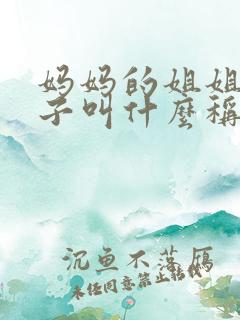 妈妈的姐姐
子叫什麼稱
沉鱼不落雁
未经同意禁止转载